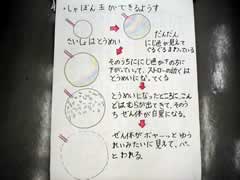 ・しゃぼん玉ができるようす
さいしょはとうめい
だんだん
にじ色が見えて
ぐるぐるまわっている
そのうちににじ色が下の方に
下がっていって、ストローの近くは
とうめいになってくる
とうめいになったところに、こん
どはもようが出てきて、そのう
ち ぜん体が白黒になる。
ぜん体がボヤーっとゆう
れいみたいに見えて、パッ
とわれる。